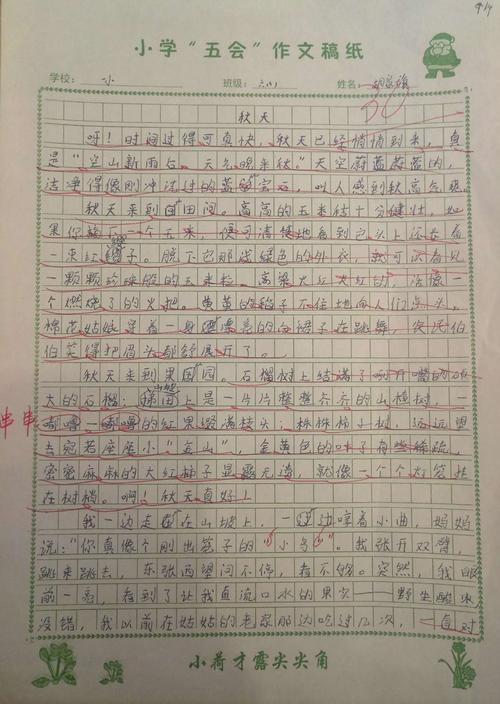 小学“五会”作文稿纸
学校： 一小 班级： 六(1) 姓名：
秋天
呀！时间过得可真快，秋天已经悄悄到来，真
是“空山新雨后，天气晚来秋。”天空蔚蓝蔚蓝的，
洁净得像刚冲洗过的蓝宝石，叫人感到秋高气爽。
秋天来到田间。高高的玉米结十分健壮，如
果你掰下一个玉米，便可清楚地看到它头上还长着
一束红缨子。脱下它那浅绿色的外衣，就可以看见
一颗颗珍珠般的玉米粒。高粱火红火红的，活像一
个燃烧了的火把。黄黄的稻子不住地向人们点头。
棉花姑娘穿着一身漂亮的白裙子在跳舞，农民伯
伯笑得把眉头都舒展开了。
秋天来到果园。石榴树上结满了咧开嘴的
大的石榴；山坡上是一片片整整齐齐的山楂树，一
串串
嘟噜一嘟噜的红果缀满枝头；株株柿子树，远远望
去宛若座座小“金山”，金黄色的叶子有些稀疏，
密密麻麻的大红柿子显露无遗，就像一个个灯笼挂
在树梢。啊！秋天真好！
我一边走在山坡上，一边哼着小曲，妈妈
说：“你真像个刚出笼子的“小鸟”。我张开双臂，
跳来跳去，东张西望问不停，看不够。突然，我眼
前一亮，看到了让我直流口水的果实——野生酸枣，
没错，我以前在姑姑的老家那边吃过几次，一直对
小荷才露尖尖角